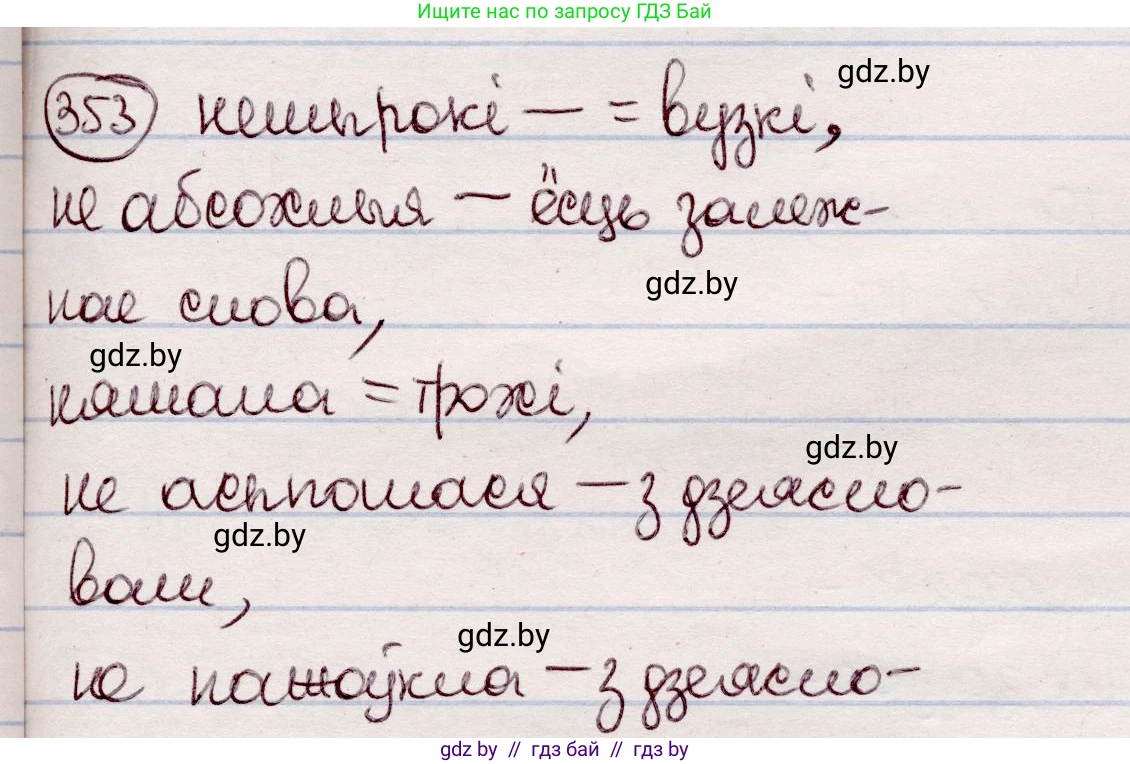 Ищите нас по запросу ГДЗ Бай
gdz.by
353 нешырокі — = вузкі,
не абсохлыя — ёсць залеж-
gdz.by
нае слова,
gdz.by
нямала = трохі,
gdz.by
не — з дзеясло-
gdz.by
вам,
gdz.by
не пажоўкла — з дзеясло-
gdz by // гдз бай // гдз by